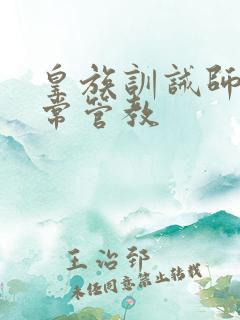 皇族訓誡師
常管教
王治郅
未经同意禁止转载